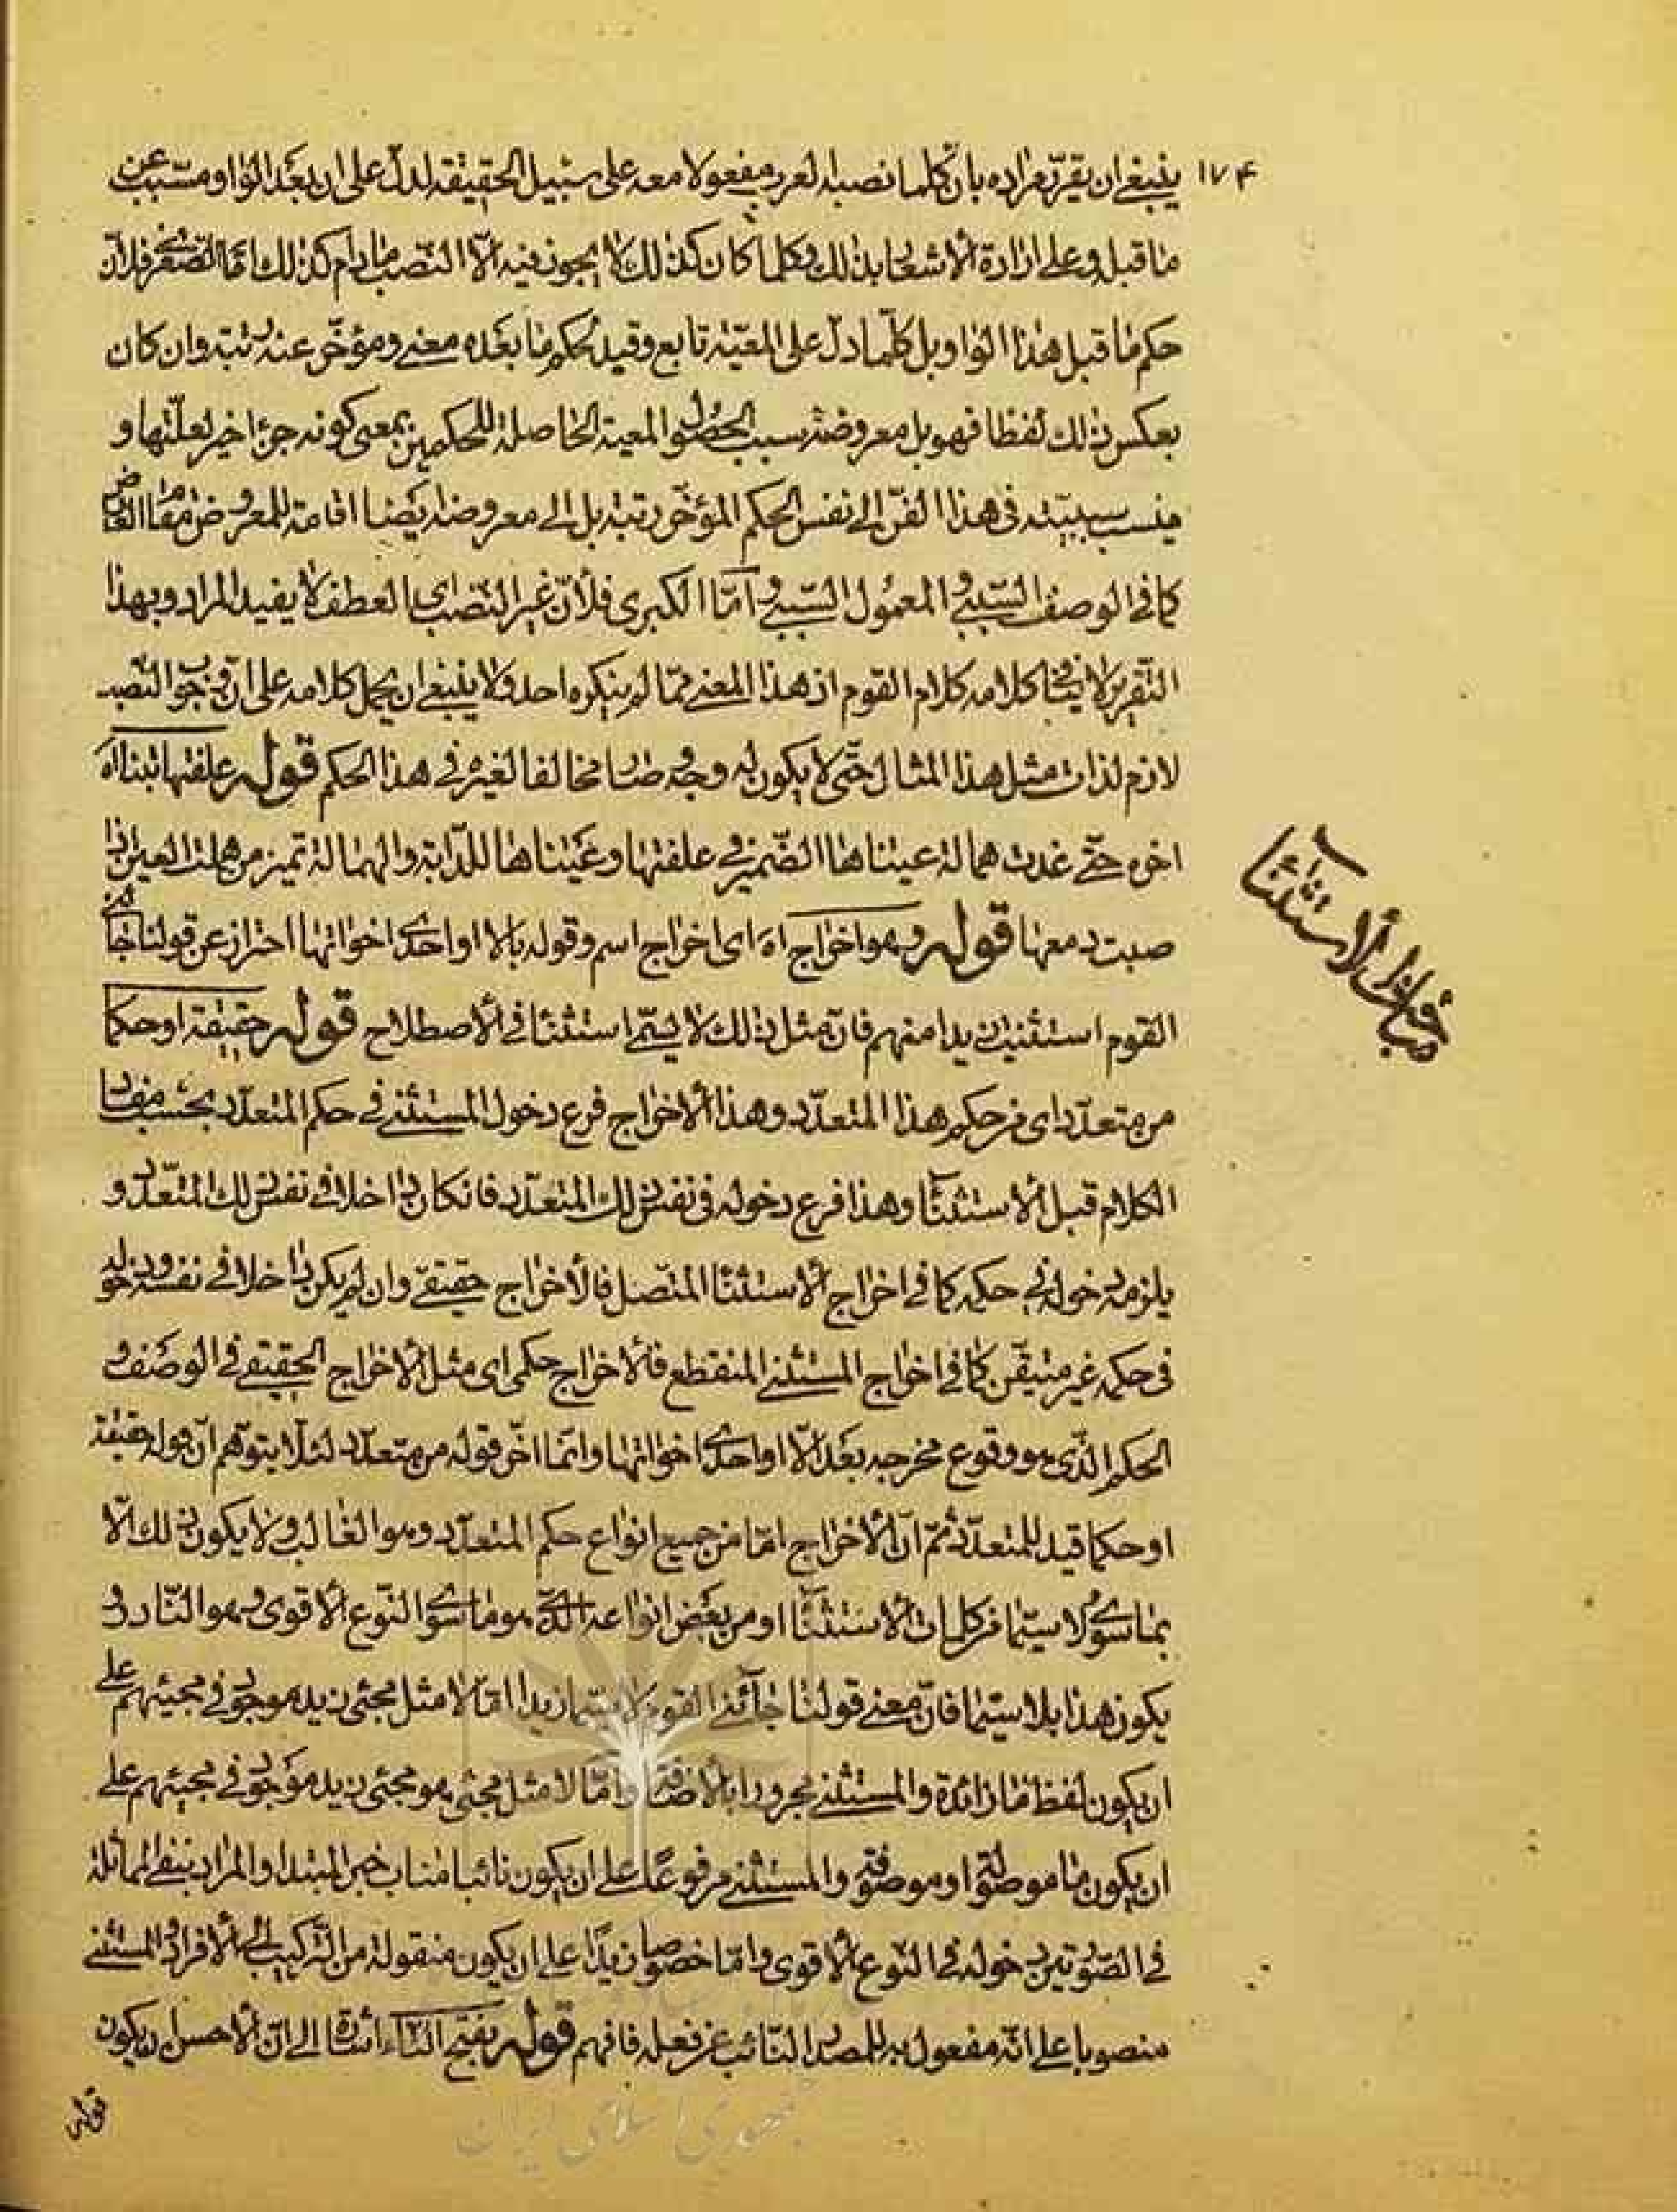 ١٧۴
ينبغى ان يقرّر مراده بان كلما نصبه العرب مفعولا معه على سبيل الحقيقة لدلّ على ان بعد الواو مسبب عن
ما قبله وعلى ارادة الاشعار بذلك وكلما كان كذلك لا يجوز فيه الّا النصب ما دام كذلك امّا الصغرى فلانّ
حكم ما قبل هذا الواو بل كلّما دلّ على المعيّة تابع وقيد لحكم ما بعده معنى ومؤخّر عنه رتبة وان كان
بعكس ذلك لفظا فهو بل معروضة سبب لحصول المعية الحاصلة للحكمين بمعنى كونه جزءا اخير لعلّتها و
ينسب سببيته فى هذا الفنّ الى نفس الحكم المؤخّر رتبة بل الى معروضه ايضا اقامة للمعروض مقام العارض
كما فى الوصف السببى والمعمول السببى وامّا الكبرى فلانّ غير النصب اى العطف لا يفيد المراد وبهذا
التقرير لا ينافى كلامه كلام القوم اذ هذا المعنى ممّا لم ينكره احد ولا ينبغى ان يحمل كلامه على انّ وجوب النصب
لازم لذات مثل هذا المثال حتّى لا يكون له وجه صار مخالفا لغيره فى هذا الحكم قوله علفتها تبنا اه
اخره حتّى غدت همالة عيناها الضمير فى علفتها وعيناها للدّابة والهمالة تميز من هملت العين اذا
صبت دمعها قوله وهو اخراج اه اى اخراج اسم وقوله بالا او احدى اخواتها احتراز عن قولنا جائنى
القوم استثنيت زيدا منهم فانّ مثل ذلك لا يسمّى استثناء فى الاصطلاح قوله حقيقة او حكما
من متعدّد اى من حكم هذا المتعدّد وهذا الاخراج فرع دخول المستثنى فى حكم المتعدّد بحسب مفاد
الكلام قبل الاستثناء وهذا فرع دخوله فى نفس ذلك المتعدّد فان كان داخلا فى نفس ذلك المتعدّد و
يلزمه دخوله فى حكمه كما فى اخراج الاستثناء المتّصل فالاخراج حقيقى وان لم يكن داخلا فى نفسه ودخوله
فى حكمه غير متيقّن كما فى اخراج المستثنى المنقطع فالاخراج حكمى اى مثل الاخراج الحقيقى فى الوصف و
الحكم الّذى هو وقوع مخرجه بعد الّا او احدى اخواتها وانّما اخّر قوله من متعدّد لئلّا يتوهّم انّ قوله حقيقة
او حكما قيد للمتعدّد ثمّ انّ الاخراج امّا من جميع انواع حكم المتعدّد وهو الغالب ولا يكون ذلك الّا
بما سوى لا سيّما من كلمات الاستثناء او من بعض انواعه الّذى هو ما سوى النوع الاقوى وهو النّادر و
يكون هذا بلا سيّما فانّ معنى قولنا جائنى القوم لا سيّما زيدا امّا لا مثل مجئى زيد موجود فى مجيئهم على
ان يكون لفظ ما زائدة والمستثنى مجرورا بالاضافة وامّا لا مثل مجئى هو مجئى زيد موجود فى مجيئهم على
ان يكون ما موصولة او موصوفة والمستثنى مرفوعا على ان يكون نائبا مناب خبر المبتدا والمراد بنفى المماثلة
فى الصورتين دخوله فى النوع الاقوى وامّا خصوصا زيدًا على ان يكون منقولة من التّركيب الى الافراد والمستثنى
منصوبا على انّه مفعول به للمصدر النّائب عن فعله فافهم قوله بفتح التّاء اشارة الى انّ الاحسن ان يكون
قوله
مبحث الاستثناء